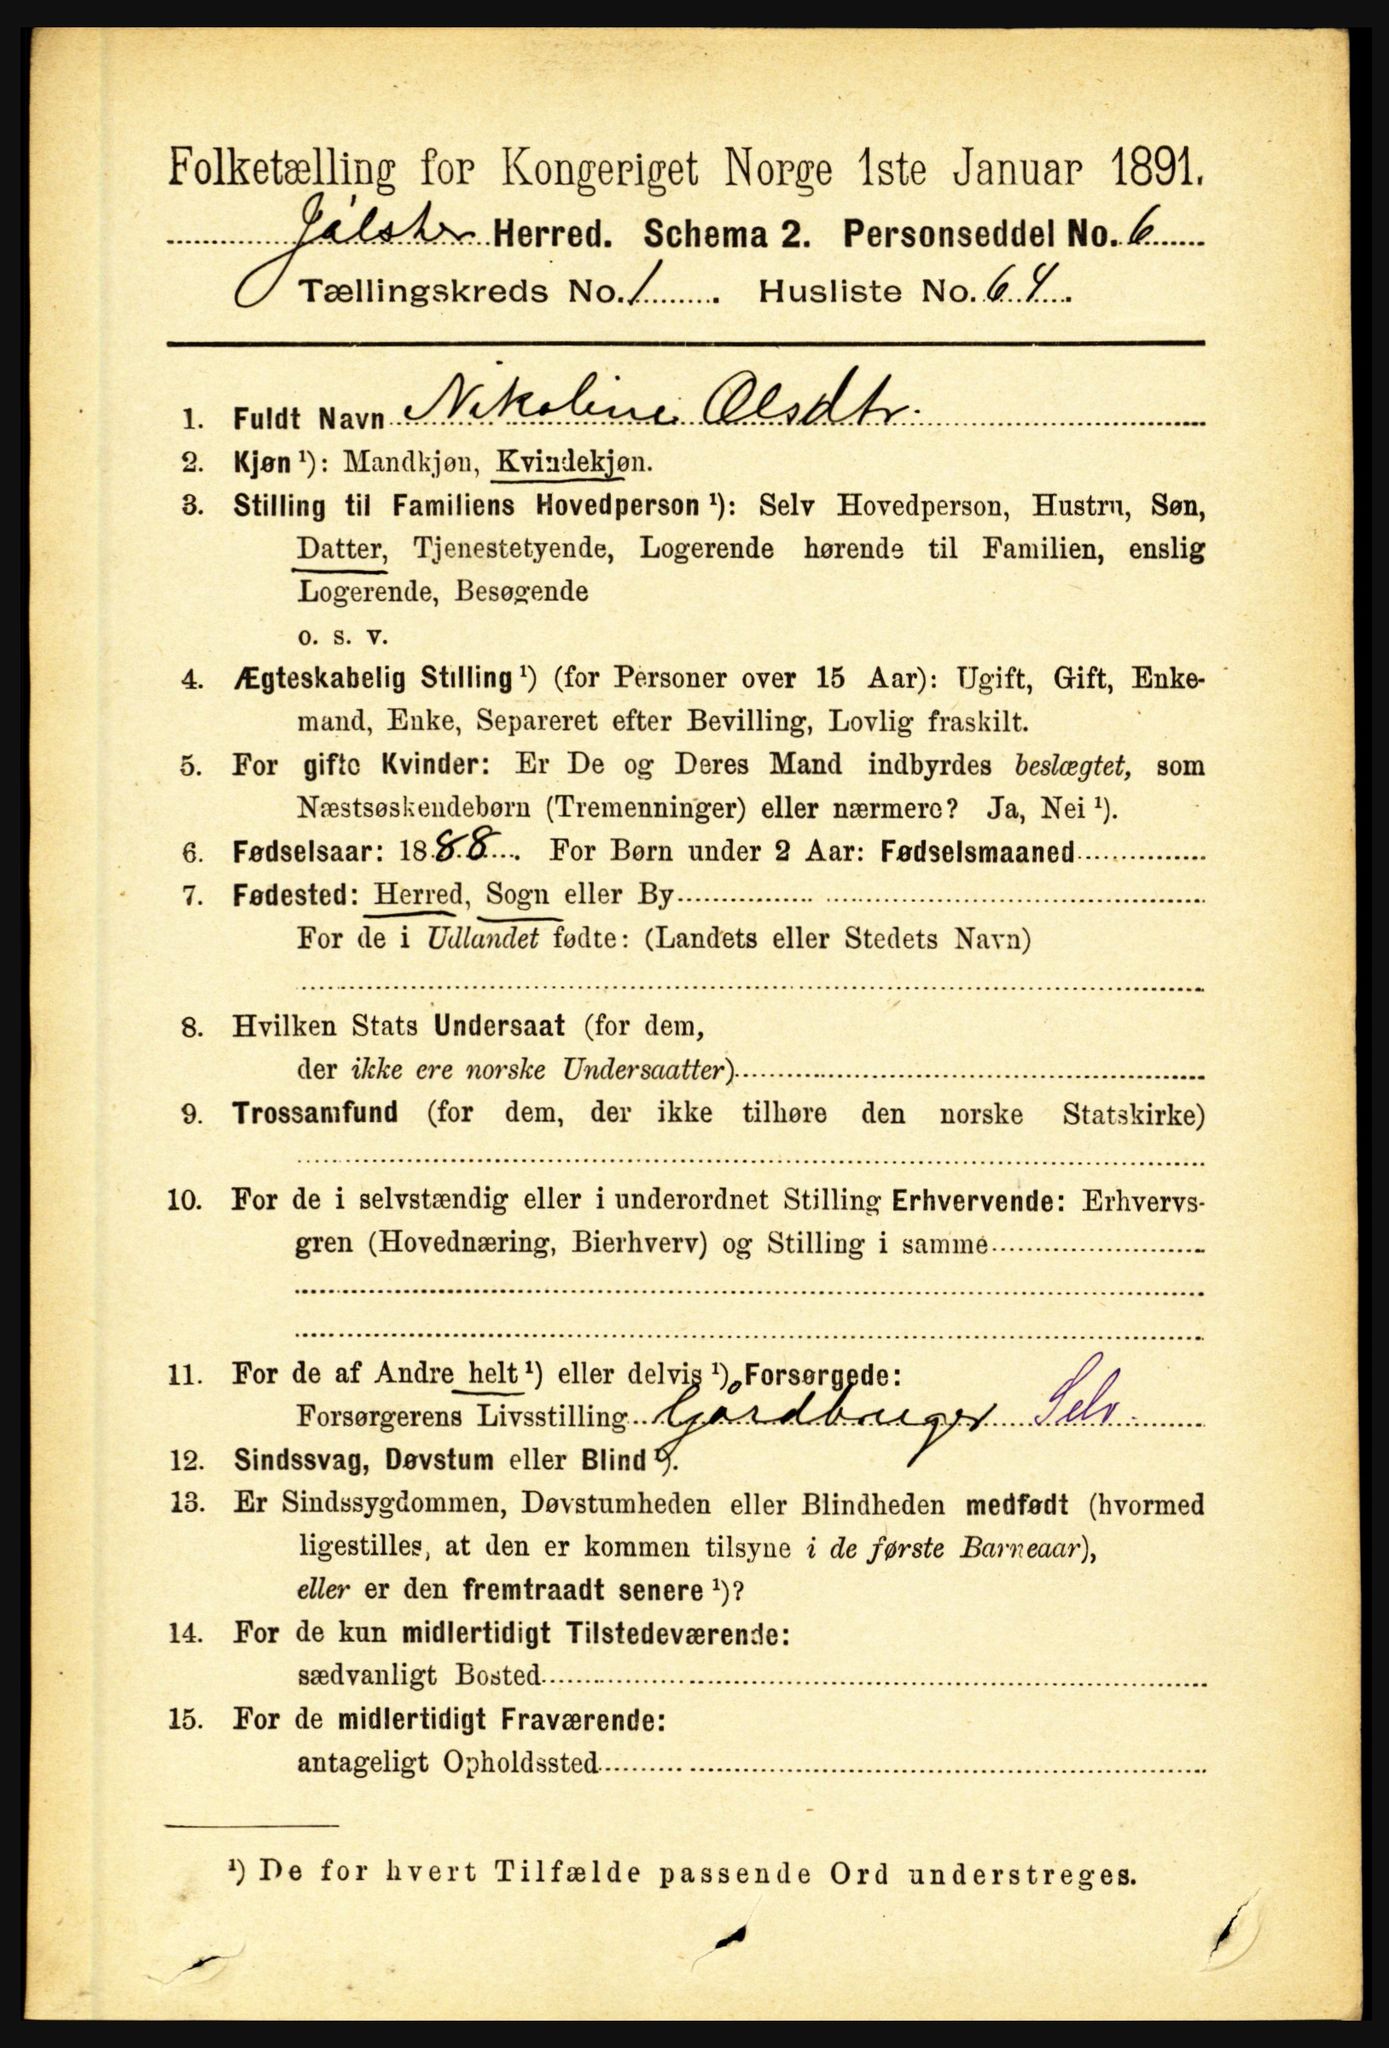 Folketælling for Kongeriget Norge 1ste Januar 1891.
Jølster Herred. Schema 2. Personseddel No. 6
Tællingskreds No. 1. Husliste No. 64.
1. Fuldt Navn Nikoline Olsdtr.
2. Kjøn ¹): Mandkjøn, Kvindekjøn.
3. Stilling til Familiens Hovedperson ¹): Selv Hovedperson, Hustru, Søn,
Datter, Tjenestetyende, Logerende hørende til Familien, enslig
Logerende, Besøgende
o. s. v.
4. Ægteskabelig Stilling ¹) (for Personer over 15 Aar): Ugift, Gift, Enke-
mand, Enke, Separeret efter Bevilling, Lovlig fraskilt.
5. For gifte Kvinder: Er De og Deres Mand indbyrdes beslægtet, som
Næstsøskendebørn (Tremenninger) eller nærmere? Ja, Nei ¹).
6. Fødselsaar: 1888. For Børn under 2 Aar: Fødselsmaaned
7. Fødested: Herred, Sogn eller By
For de i Udlandet fødte: (Landets eller Stedets Navn)
8. Hvilken Stats Undersaat (for dem,
der ikke ere norske Undersaatter)
9. Trossamfund (for dem, der ikke tilhøre den norske Statskirke)
10. For de i selvstændig eller i underordnet Stilling Erhvervende: Erhvervs-
gren (Hovednæring, Bierhverv) og Stilling i samme
11. For de af Andre helt ¹) eller delvis ¹) Forsørgede:
Forsørgerens Livsstilling Gårdbruger Selv
12. Sindssvag, Døvstum eller Blind ¹).
13. Er Sindssygdommen, Døvstumheden eller Blindheden medfødt (hvormed
ligestilles, at den er kommen tilsyne i de første Barneaar),
eller er den fremtraadt senere ¹)?
14. For de kun midlertidigt Tilstedeværende:
sædvanligt Bosted
15. For de midlertidigt Fraværende:
antageligt Opholdssted
¹) De for hvert Tilfælde passende Ord understreges.